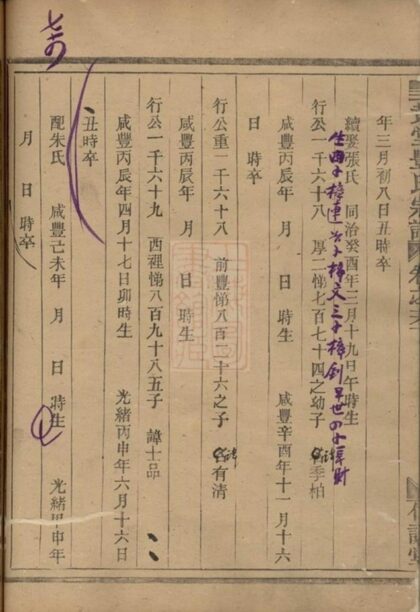 年三月初八日丑時卒
續娶張氏 同治癸酉年三月十九日午時生
生四子 樟運 次子樟文 三子樟釗 早世 四子樟財
行公一千六十八 厚二悌七百七十四之幼子 諱季柏
咸豐丙辰年 月 日 時生 咸豐辛酉年十一月十六
日 時卒
行公重一千六十八 前豐悌八百二十六之子 諱有清
咸豐丙辰年 月 日 時生 月 日 時卒
行公一千六十九 西裡悌八百九十八五子 諱士品
咸豐丙辰年四月十七日卯時生 光緒丙申年六月十六日
丑時卒
配朱氏 咸豐己未年 月 日 時生 光緒甲申年
月 日 時卒